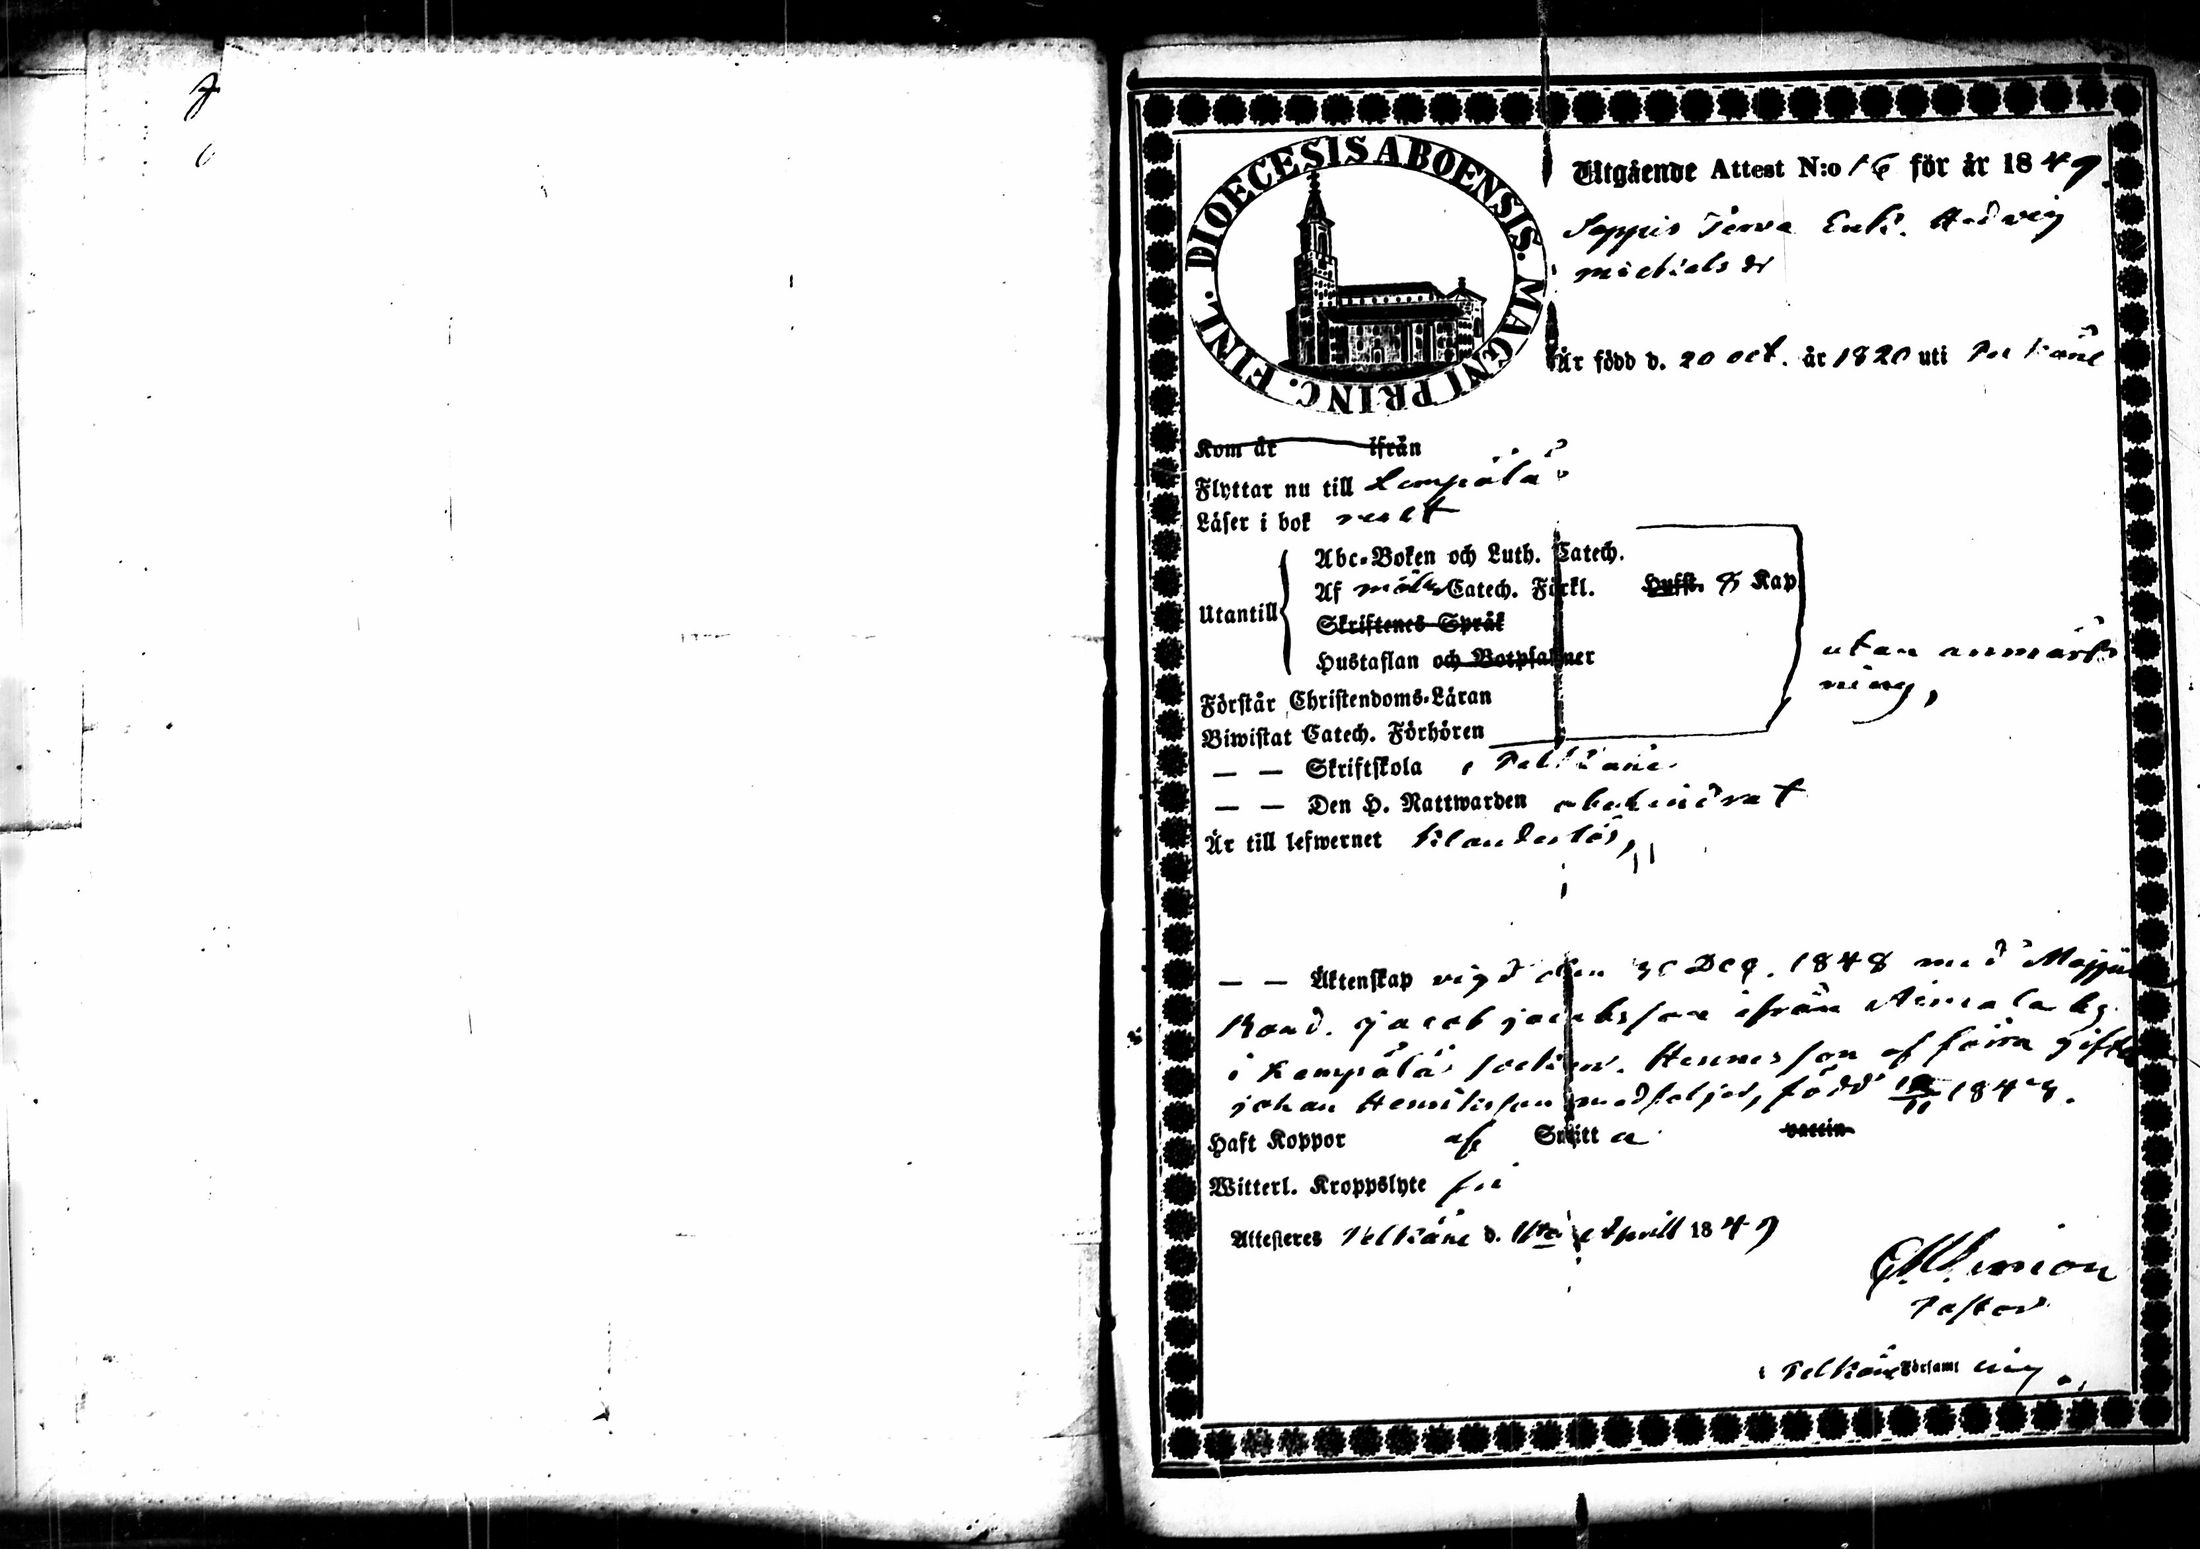 DIOECESIS ABOENSIS. MAGNI PRINC. FINL.
Utgående Attest N:o 16 för år 1849
Seppis Enk. Hedvig
Michels dr
Är född d. 20 oct. år 1820 uti Pelkäne
Kom år ifrån
Flyttar nu till Lempälä
Läser i bok
Abc-Boken och Luth. Catech.
Af Catech. Förkl. Hufst. 8 Kap
Utantill
Skriftenes Språk
Hustaflan och Botpsalmer
utan anmärk
ning,
Förstår Christendoms-Läran
Biwistat Catech. Förhören
— — Skriftskola i Pelkäne
— — Den H. Nattwarden obehindrat
Är till lefwernet klanderlös,
— — Äktenskap vigd den Dec. 1848 med
Jacob Jacobsson ifrån by
i Lempälä socken. Hennes son af förra gifte
Johan Henriksson medföljer, född
Haft Koppor af Smitta vaccin
Witterl. Kroppslyte fri
Attesteres Pelkäne d. April 1849
Pastor
i Pelkäne Församling.